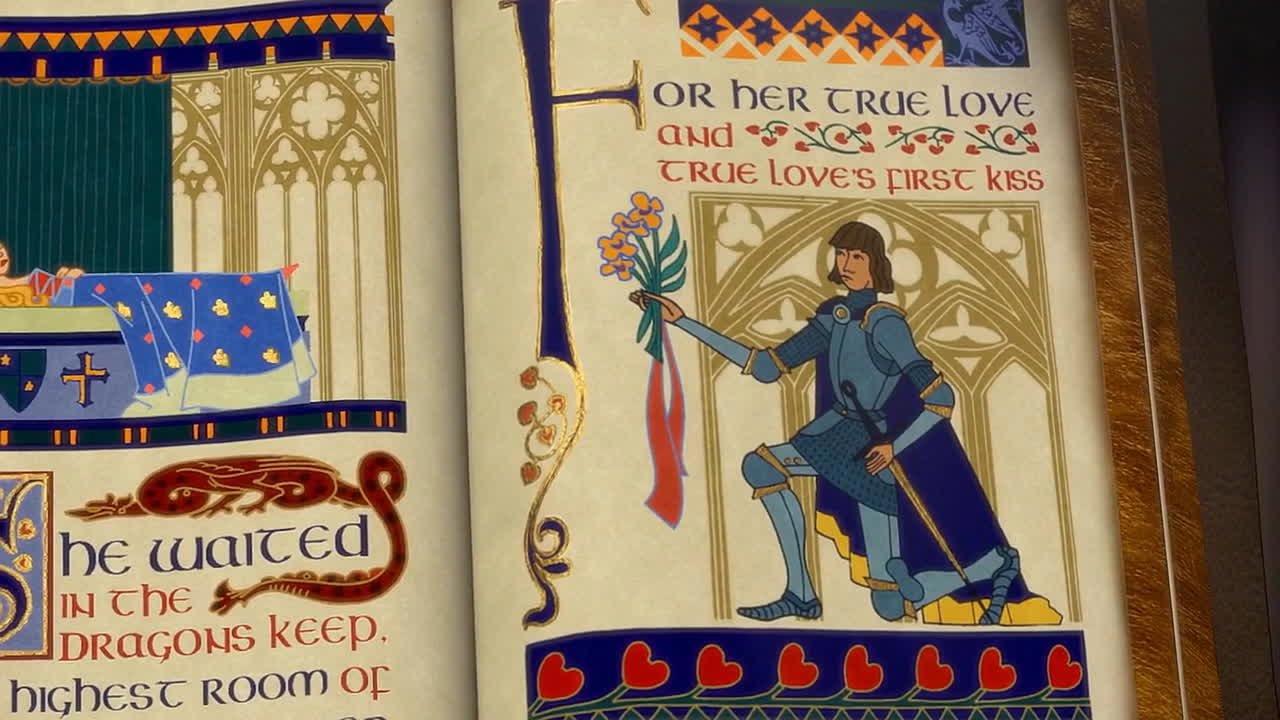 She waited
in the
dragons keep,
highest room of
For her true love
and
true love's first kiss